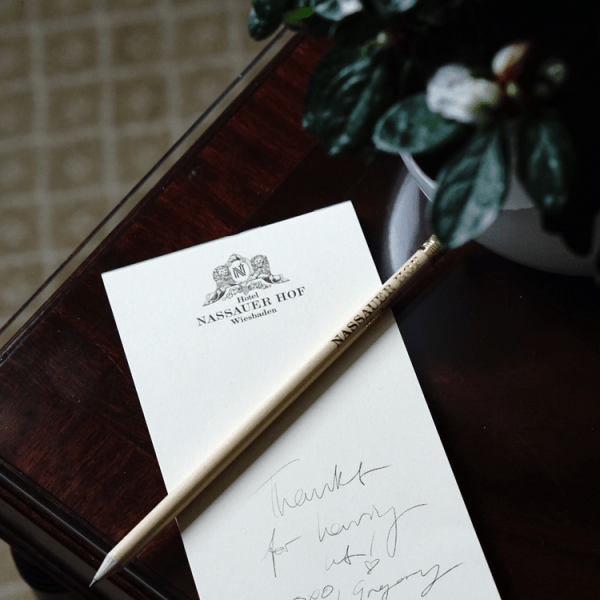 N
Hotel
NASSAUER HOF
Wiesbaden
NASSAUER
Thanks
for having
us!
Gregory